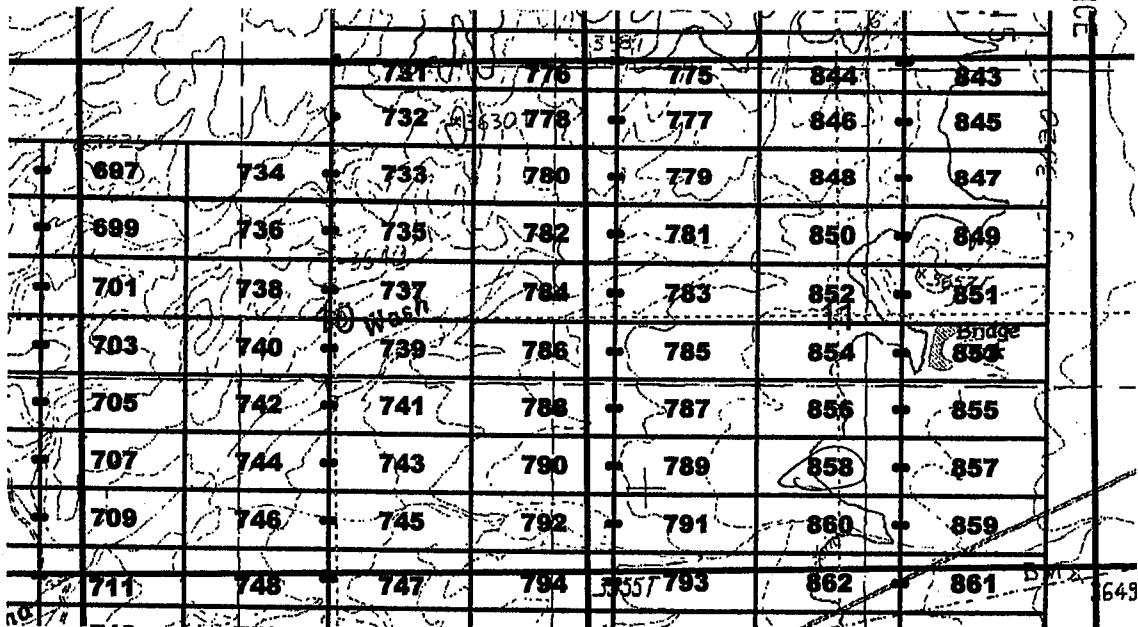 3481
731 776 775 844 843
732 3630 778 777 846 845
697 734 733 780 779 848 847
699 736 735 782 781 850 849
701 738 737 784 783 852 851
Wash
Bridge
703 740 739 786 785 854 853
705 742 741 788 787 856 855
707 744 743 790 789 858 857
709 746 745 792 791 860 859
711 748 747 794 3555T 793 862 861
3649